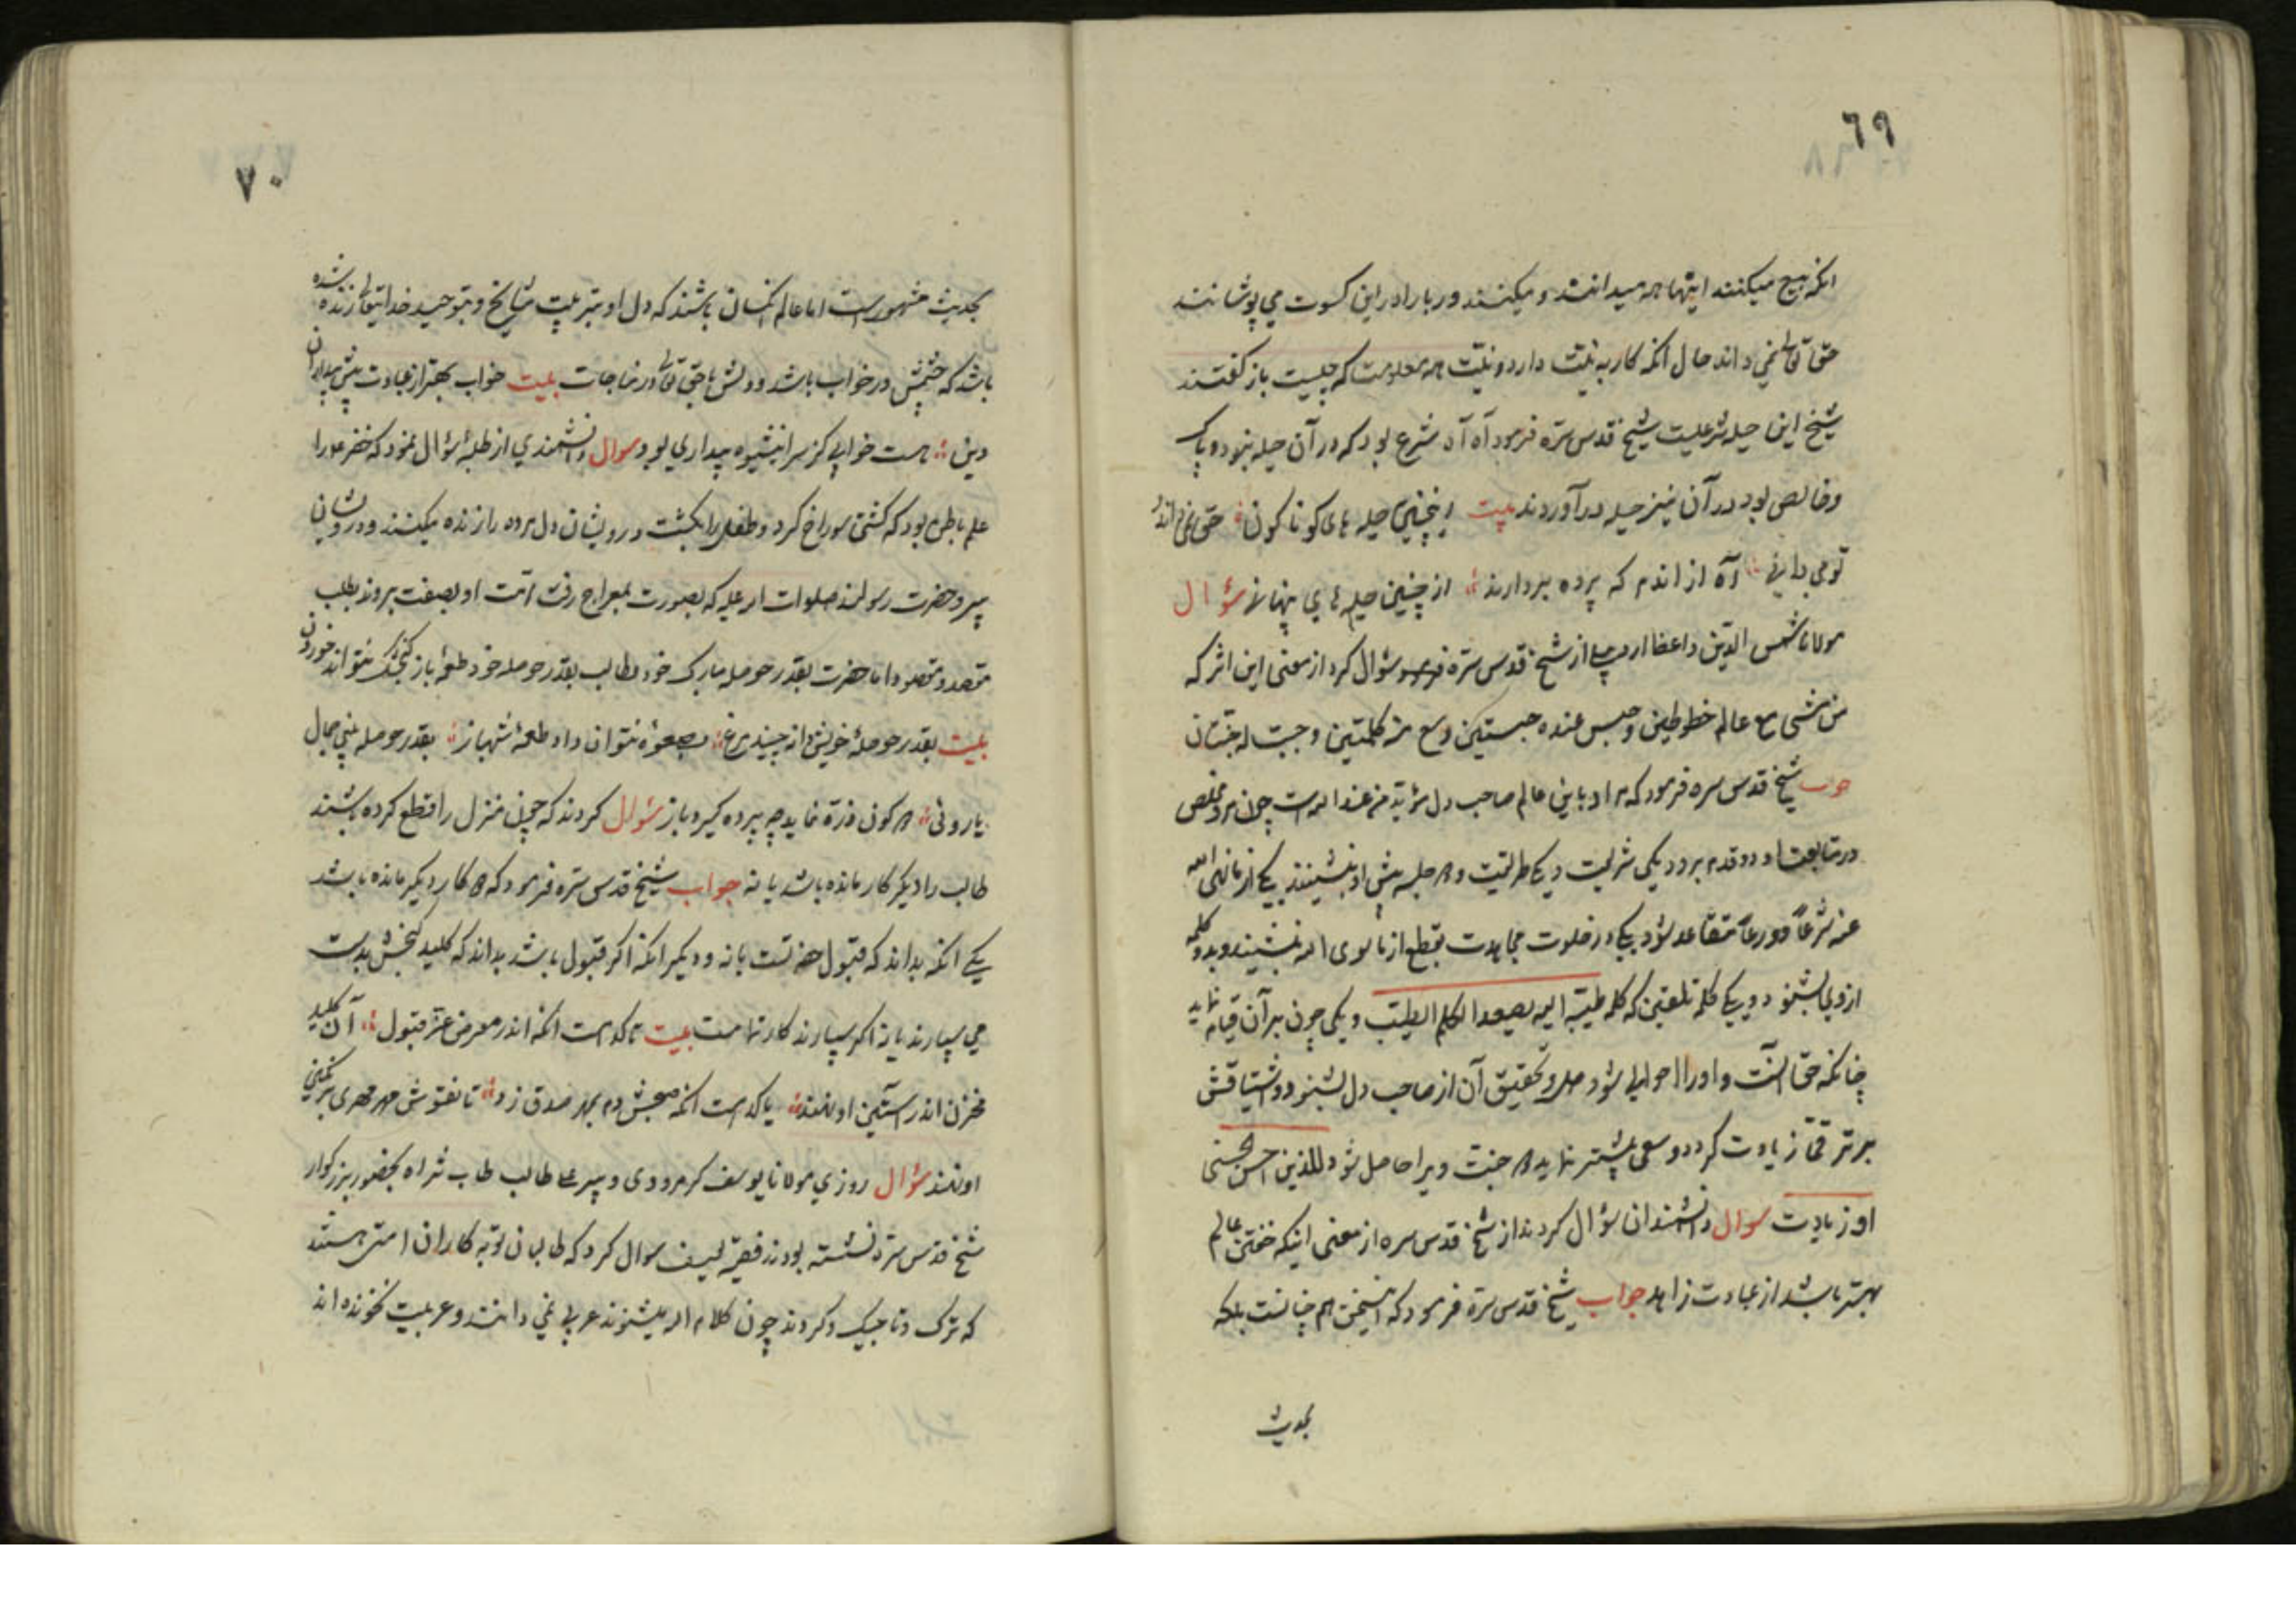 ٦٩
انکه هیچ میکنند اینها همه میدانند و میکنند و ربا را در این کسوت می پوشانند
حق تعالی نمی داند حال انکه کار به نیّت دارد و نیّت همه معلومست که چیست باز گفتند
شیخ این حیله شرعیست شیخ قدس سرّه فرمود آه آه شرع بود که در آن حیله نبود و پاک
و خالص بود در آن نیز حیله در آوردند بیت اینچنین حیله های کوناکون حق نمی داند
تو می دانی آه از اندم که پرده بردارند از چنین حیله های پنهانی سؤال
مولانا شمس الدّین واعظ از شیخ قدس سرّه سؤال کرد از معنی این اثر که
من مشی مع عالم خطوطین و جلس عنده جلستین و سمع منه کلمتین وجبت له جنتان
جواب شیخ قدس سره فرمود که مراد باین عالم صاحب دل مؤید من عند الله است چون مرد مخلص
در متابعت او دو قدم برود یکی شریعت و یکی طریقت و دو جلسه پیش او بنشیند یکی از ما نهی الله
عنه شرعاً و ورعاً متقاعد شود و یکی در خلوت مجاهدت بقطع از ما سوی الله بنشیند و دو کلمه
از وی بشنود یکی کلمه تلقین که کلمه طیّبه الیه یصعد الکلم الطیّب و یکی چون بر آن قیام نماید
چنانکه حق آنست و او را احوالی شود حل و تحقیق آن از صاحب دل بشنود و اشتیاقش
بر ترقّی زیادت کردد و سعی بیشتر نماید دو جنّت ویرا حاصل شود للذین احسنوا الحسنی
او زیادت سوال دانشمندان سؤال کردند از شیخ قدس سره از معنی اینکه خفتن عالم
بهتر باشد از عبادت زاهد جواب شیخ قدس سرّه فرمود که این سخن هم چنانست بلکه
بحدیث
٧٠
بحدیث مشهورست اما عالم انکسان باشند که دل او بتربیت مشایخ و بتوحید خدایتعالی زنده شده
باشد که چشمش در خواب باشد و دلش با حق تعالی در مناجات بیت خواب بهتر از عبادت پیش بیداران
دین هست خوابی کز سر اینشیوه بیداری بود سوال دانشمندی از طلبه سؤال نمود که خضر ع را
علم باطن بود که کشتی سوراخ کرد و طفل را بکشت درویشان دل مرده را زنده میکنند و درویشان
پیرو حضرت رسولند صلوات الله علیه که بصورت بمعراج رفت امّت او بصفت بروند بطلب
مقصد و مقصود اما حضرت بقدر حوصله مبارک خود و طالب بقدر حوصله خود طعمه باز کنجشک نتواند خوردن
بیت بقدر حوصله خویش دانه چیند مرغ بصعوه نتوان داد طعمه شهباز بقدر حوصله بینی جمال
یار ولی دو کون ذرّه نماید چو پرده گیرد باز سؤال کردند که چون منزل را قطع کرده باشند
طالب را دیکر کار مانده باشد یا نه جواب شیخ قدس سرّه فرمود که دو کار دیکر مانده باشد
یکی انکه بداند که قبول حضرتست یا نه و دیکر انکه اکر قبول باشد بداند که کلید گنجش بدست
می سپارند یا نه اکر سپارند کار تمامست بیت تا کدامست انکه اندر معرض عزّ قبول آن کلید
مخزن اندر آستین او نهند یا کدامست انکه صبحش دم بمهر صدق زد تا نقوش مهر مهری بر نگین
او نهند سؤال روزی مولانا یوسف کرمرودی و پیر علی طالب طاب ثراه بحضور بزرکوار
شیخ قدس سرّه نشسته بودند فقیه لطیف سوال کرد که طالبان توبه کاران امتی هستند
که ترک و تاجیک و کردند چون کلام الله میشنوند عربی نمی دانند و عربیت نخوانده اند